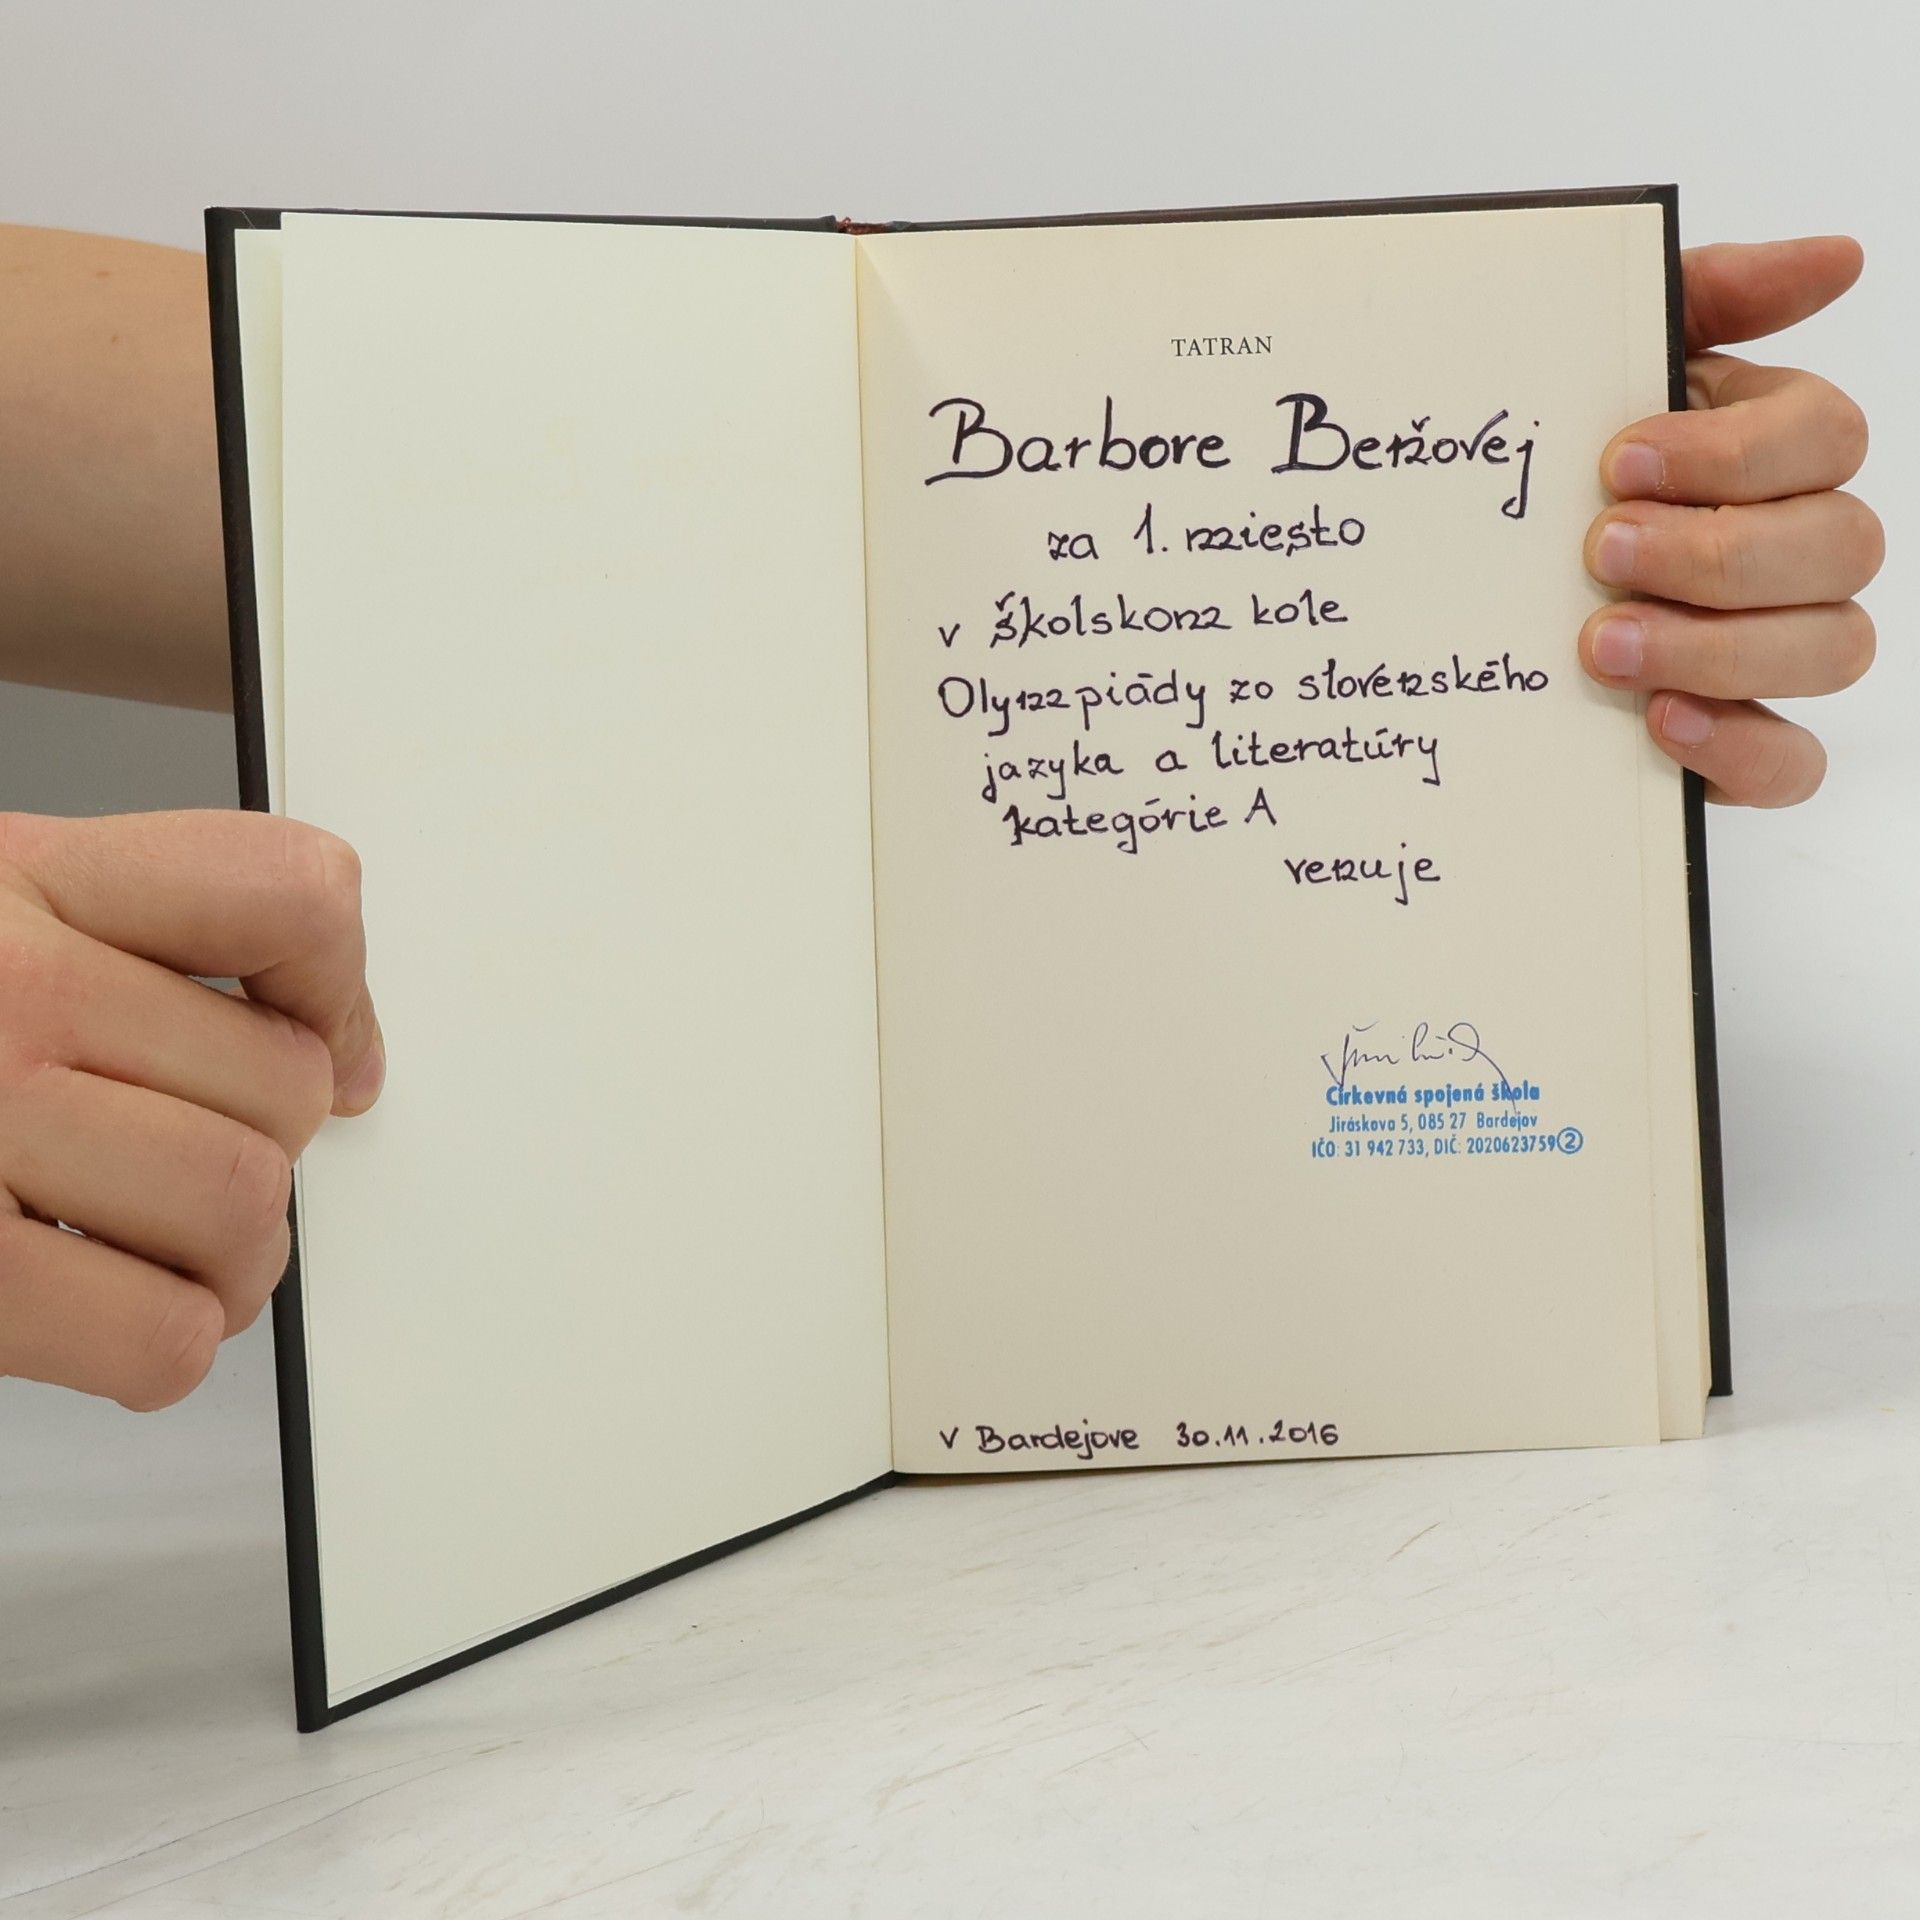 TATRAN
Barbore Benžovej
za 1. miesto
v školskom kole
Olympiády zo slovenského
jazyka a literatúry
kategórie A
venuje
Cirkevná spojená škola
Jiráskova 5, 085 27 Bardejov
IČO: 31 942 733, DIČ: 2020623759 2
V Bardejove 30.11.2016